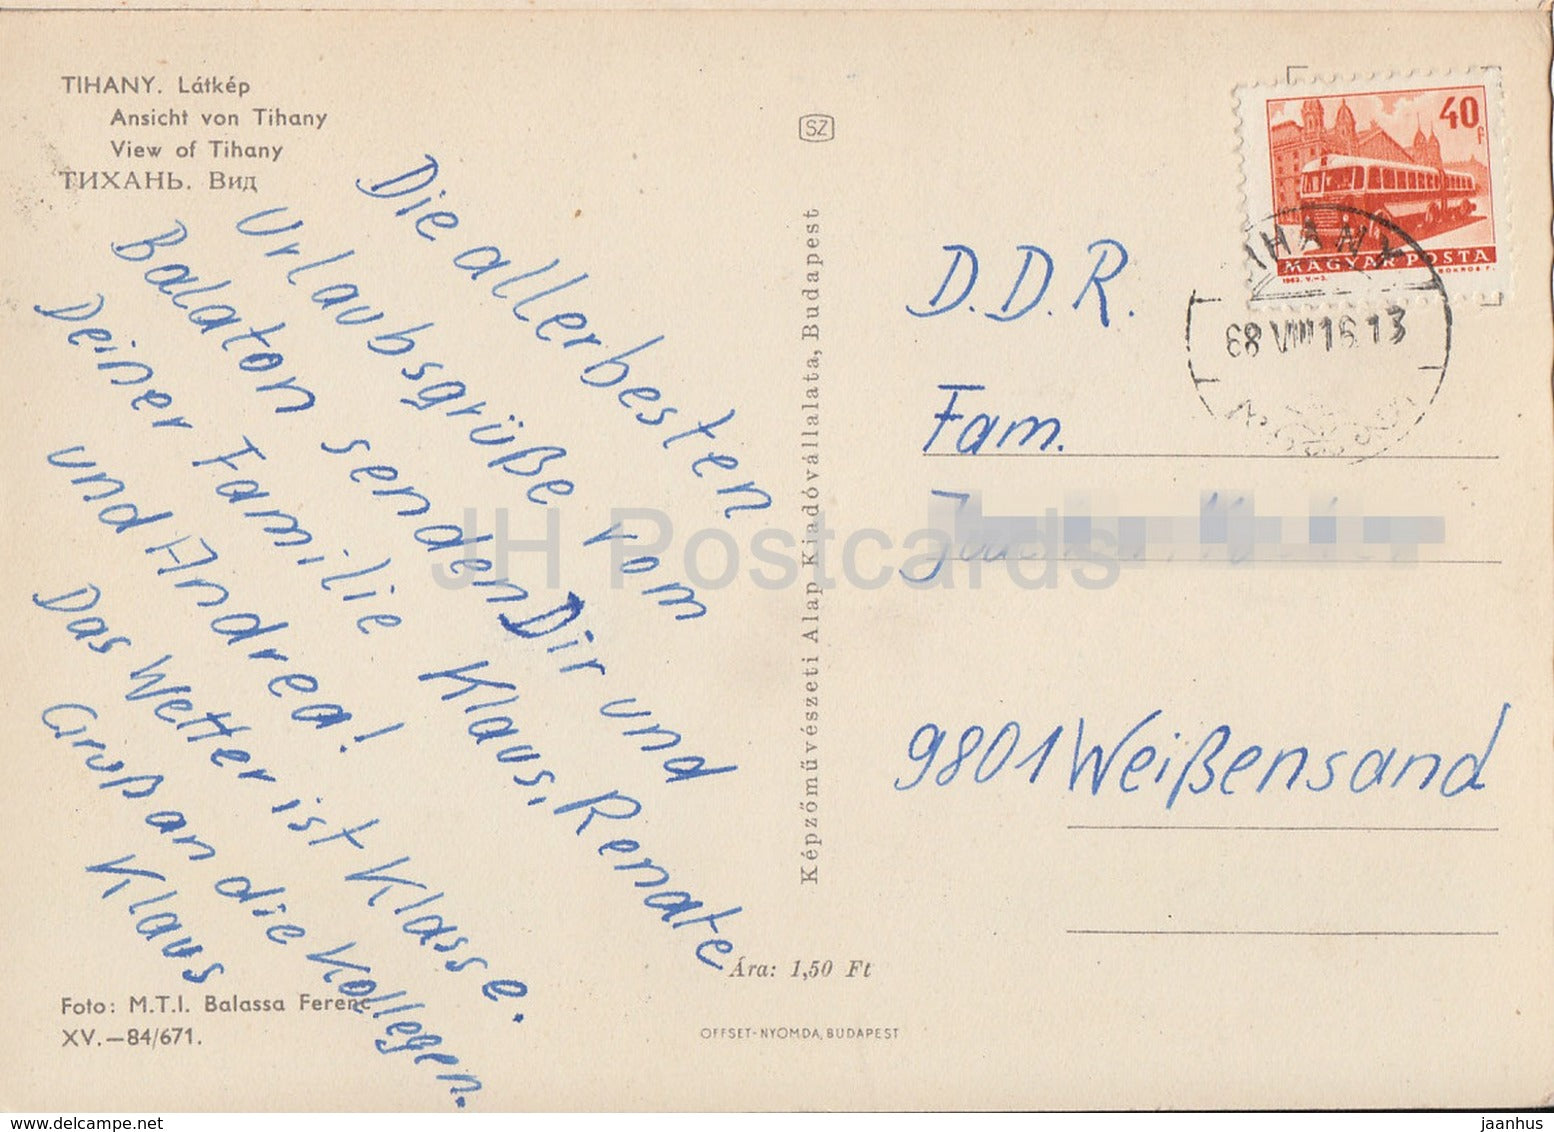 TIHANY. Látkép
Ansicht von Tihany
View of Tihany
ТИХАНЬ. Вид
Die allerbesten
Urlaubsgrüße vom
Balaton senden Dir und
Deiner Familie Klaus, Renate
und Andrea!
Das Wetter ist Klasse.
Gruß an die Kollegen.
Klaus
Foto: M.T.I. Balassa Ferenc
XV.—84/671.
SZ
Képzőművészeti Alap Kiadóvállalata, Budapest
Ára: 1,50 Ft
OFFSET-NYOMDA, BUDAPEST
40 f
MAGYAR POSTA
TIHANY
68 VIII 16 13
D.D.R.
Fam.
9801 Weißensand
JH Postcards
www.delcampe.net
jaanhus